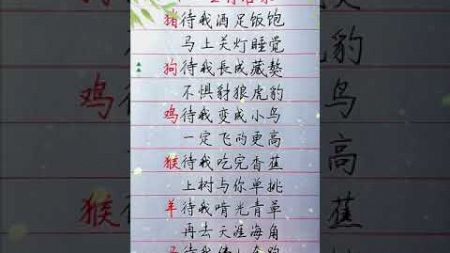 猪待我酒足饭饱
马上关灯睡觉
狗待我長成藏獒
不惧豺狼虎豹
鸡待我变成小鸟
一定飞的更高
猴待我吃完香蕉
上树与你单挑
羊待我啃光青草
再去天涯海角